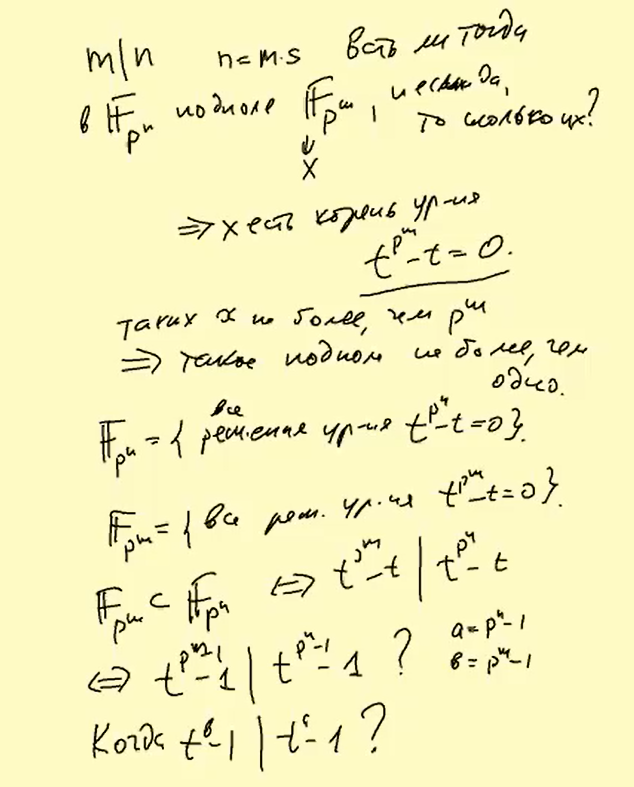 m|n n=m·s Есть ли тогда
в 𝔽_{p^n} подполе 𝔽_{p^m}, и если да,
то сколько их?
↓
x
⇒ x есть корень ур-ия
t^{p^m}-t=0.
таких x не более, чем p^m
⇒ такое подполе не более, чем
одно.
𝔽_{p^n}={ все решения ур-ия t^{p^n}-t=0}.
𝔽_{p^m}={ все реш. ур-ия t^{p^m}-t=0}.
𝔽_{p^m} ⊂ 𝔽_{p^n} ⇔ t^{p^m}-t | t^{p^n}-t
⇔ t^{p^m-1}-1 | t^{p^n-1}-1 ? a=p^n-1
в=p^m-1
Когда t^в-1 | t^a-1 ?